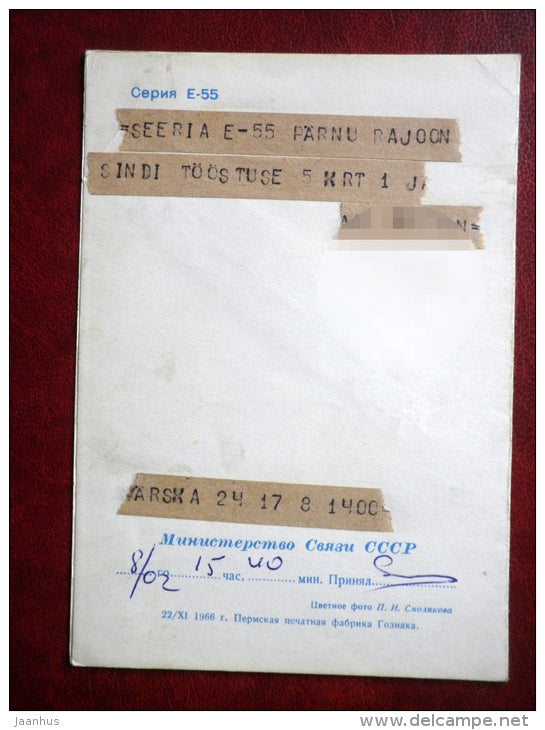 Серия Е-55
=SEERIA E-55 PÄRNU RAJOON
SINDI TÖÖSTUSE 5 KRT 1 JA
VÄRSKA 24 17 8 1400=
Министерство Связи СССР
8/02 го 15 час. 40 мин. Принял
Цветное фото П. И. Смолякова
22/XI 1966 г. Пермская печатная фабрика Гознака.
jaanhus
www.delcampe.net